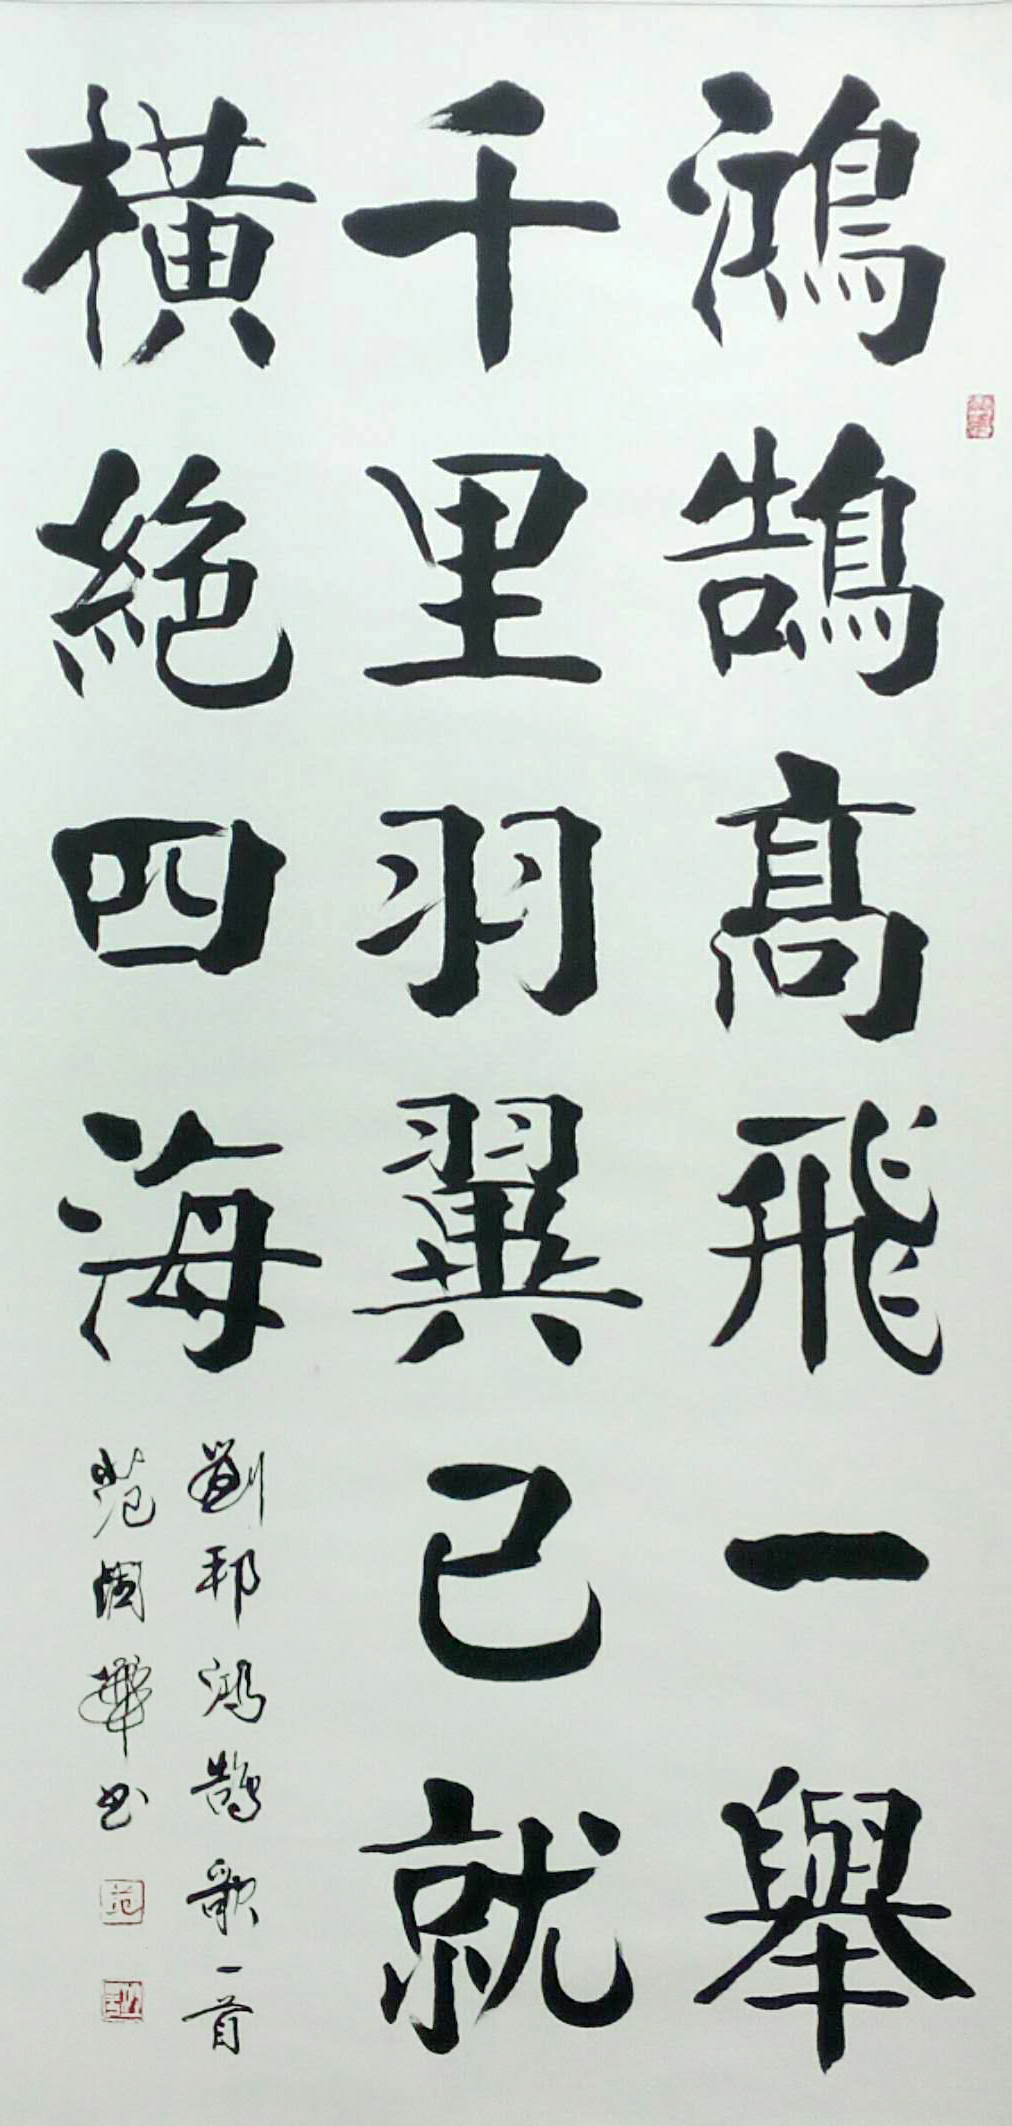 鴻鵠髙飛一舉
千里羽翼已就
橫絕四海
劉邦鴻鵠歌一首
范國華书
范